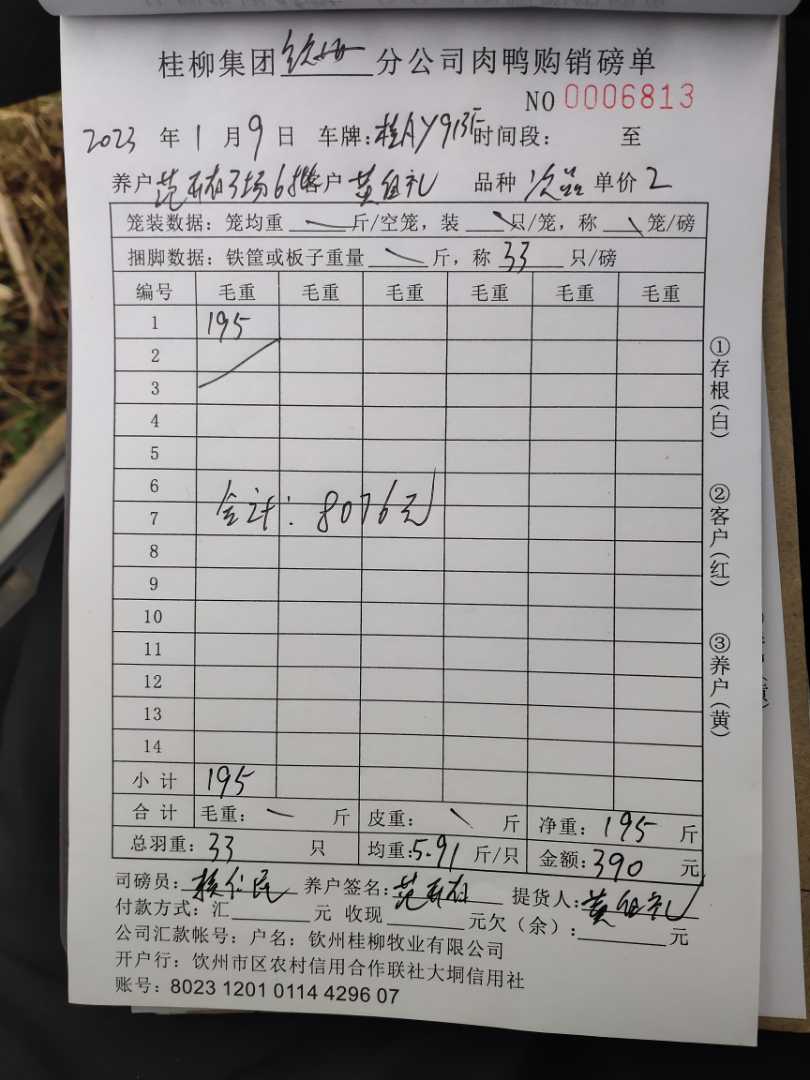 桂柳集团钦州分公司肉鸭购销磅单
NO 0006813
2023 年 1 月 9 日 车牌:桂AY913F 时间段: 至
养户 范 3场6批 客户 黄 礼 品种 次品 单价 2
笼装数据:笼均重 斤/空笼,装 只/笼,称 笼/磅
捆脚数据:铁筐或板子重量 斤,称 33 只/磅
编号 毛重 毛重 毛重 毛重 毛重 毛重
1 195
2
3
4
5
6
7
合计:8076元
8
9
10
11
12
13
14
小计 195
合计 毛重: 斤 皮重: 斤 净重:195 斤
总羽重:33 只 均重:5.91 斤/只 金额:390 元
司磅员: 仁民 养户签名:范 提货人:黄 礼
付款方式:汇 元 收现 元欠(余): 元
公司汇款帐号:户名:钦州桂柳牧业有限公司
开户行:钦州市区农村信用合作联社大垌信用社
账号:8023 1201 0114 4296 07
①存根(白)
②客户(红)
③养户(黄)